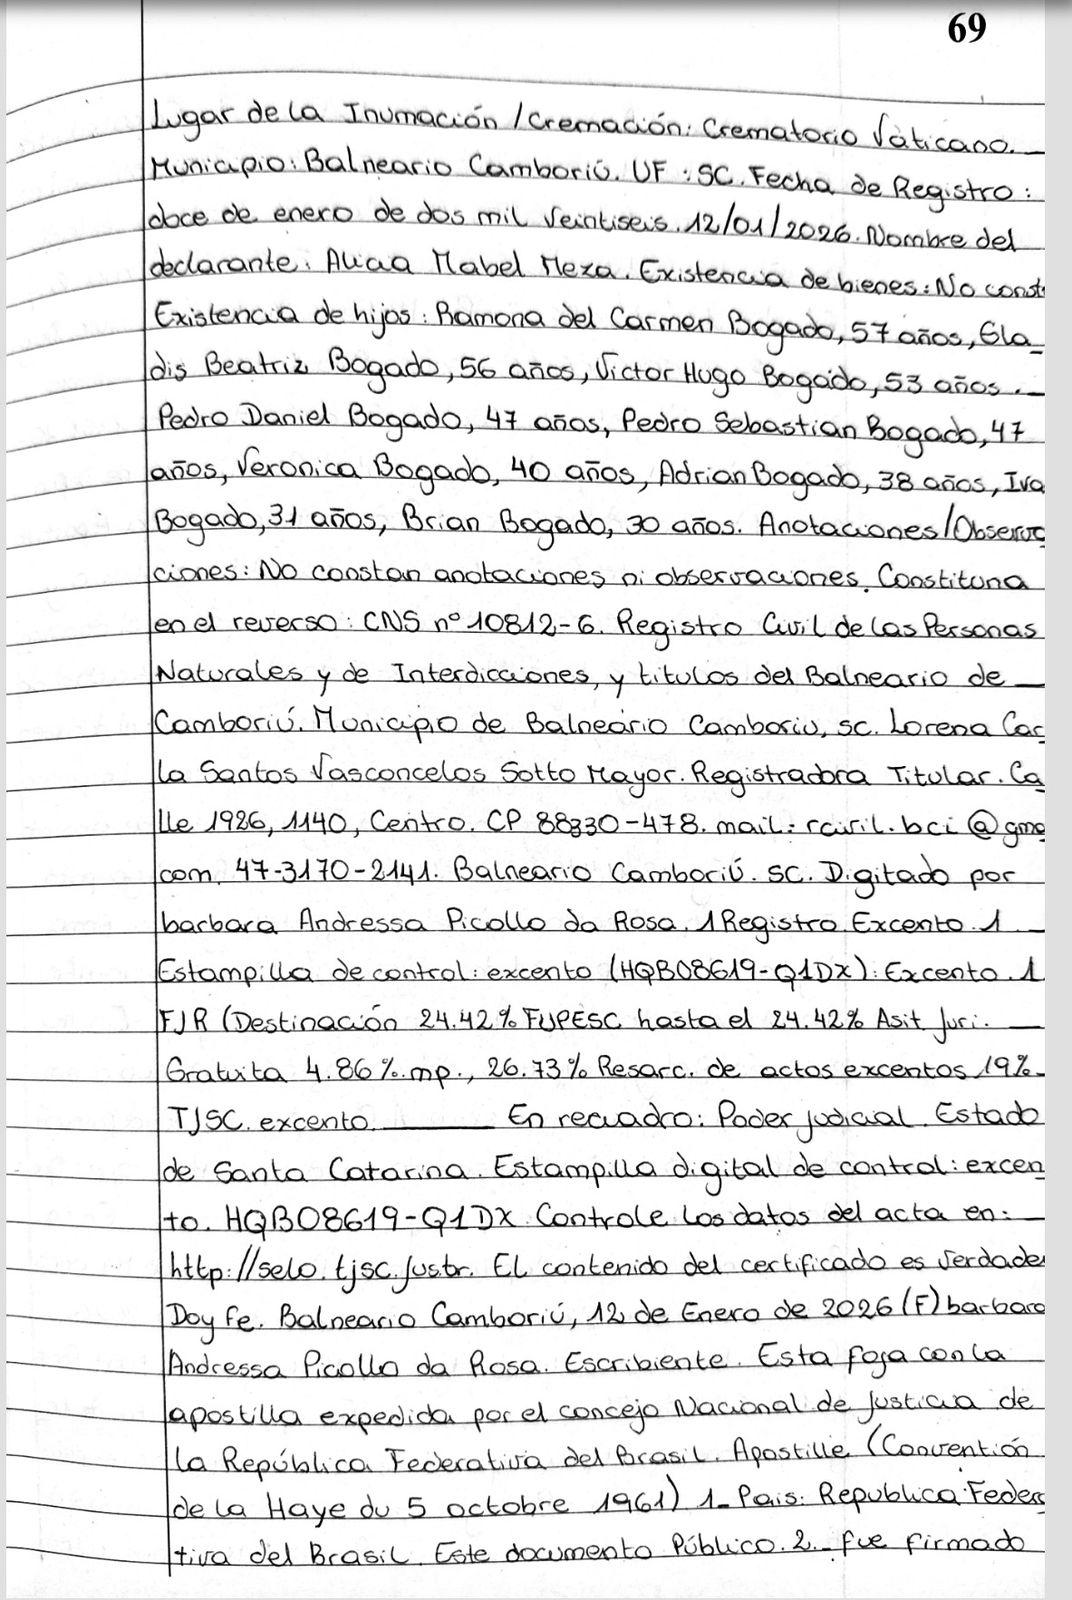 69
Lugar de la Inumación / Cremación: Crematorio Vaticano.
Municipio: Balneario Camboriú. UF : SC. Fecha de Registro :
doce de enero de dos mil veintiseis. 12/01/2026. Nombre del
declarante: Alicia Mabel Meza. Existencia de bienes: No const
Existencia de hijos : Ramona del Carmen Bogado, 57 años, Gla_
dis Beatriz Bogado, 56 años, Victor Hugo Bogado, 53 años.
Pedro Daniel Bogado, 47 años, Pedro Sebastian Bogado, 47
años, Veronica Bogado, 40 años, Adrian Bogado, 38 años, Iva
Bogado, 31 años, Brian Bogado, 30 años. Anotaciones/Observa
ciones: No constan anotaciones ni observaciones. Constituna
en el reverso: CNS nº 10812-6. Registro Civil de las Personas
Naturales y de Interdicciones, y titulos del Balneario de
Camboriú. Municipio de Balneario Camboriu, SC. Lorena Car
la Santos Vasconcelos Sotto Mayor. Registradora Titular. Ca
lle 1926, 1140, Centro. CP 88330-478. mail: rcivil.bci@gma
com. 47-3170-2141. Balneario Camboriú. SC. Digitado por
barbara Andressa Picollo da Rosa. 1 Registro Excento. 1
Estampilla de control: excento (HQB08619-Q1DX): Excento. 1
FJR (Destinación 24.42% FUPESC hasta el 24.42% Asit Juri.
Gratuita 4.86%. mp., 26.73% Resarc. de actos excentos 19%
TJSC. excento. En recuadro: Poder judicial. Estado
de Santa Catarina. Estampilla digital de control: excen
to. HQB08619-Q1DX Controle los datos del acta en:
http://selo.tjsc.justr. El contenido del certificado es verdade
Doy fe. Balneario Camboriú, 12 de Enero de 2026 (F) barbara
Andressa Picollo da Rosa. Escribiente. Esta foja con la
apostilla expedida por el concejo Nacional de Justicia de
la República Federativa del Brasil. Apostille (Convention
de la Haye du 5 octobre 1961) 1_ Pais: Republica Federa
tiva del Brasil. Este documento Público. 2_ fue firmado